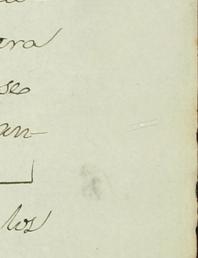 ara
se
an-
los